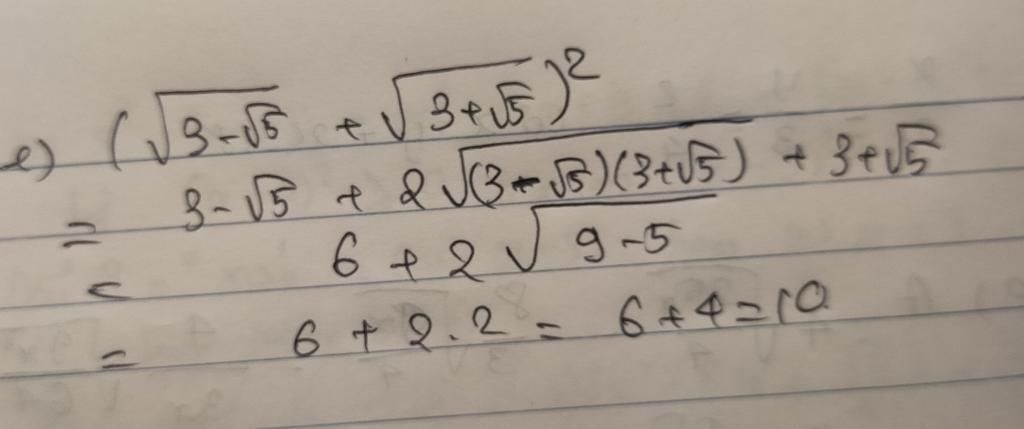 e) (√(3-√5) + √(3+√5))²
= 3-√5 + 2√((3-√5)(3+√5)) + 3+√5
= 6 + 2√(9-5)
= 6 + 2.2 = 6+4=10